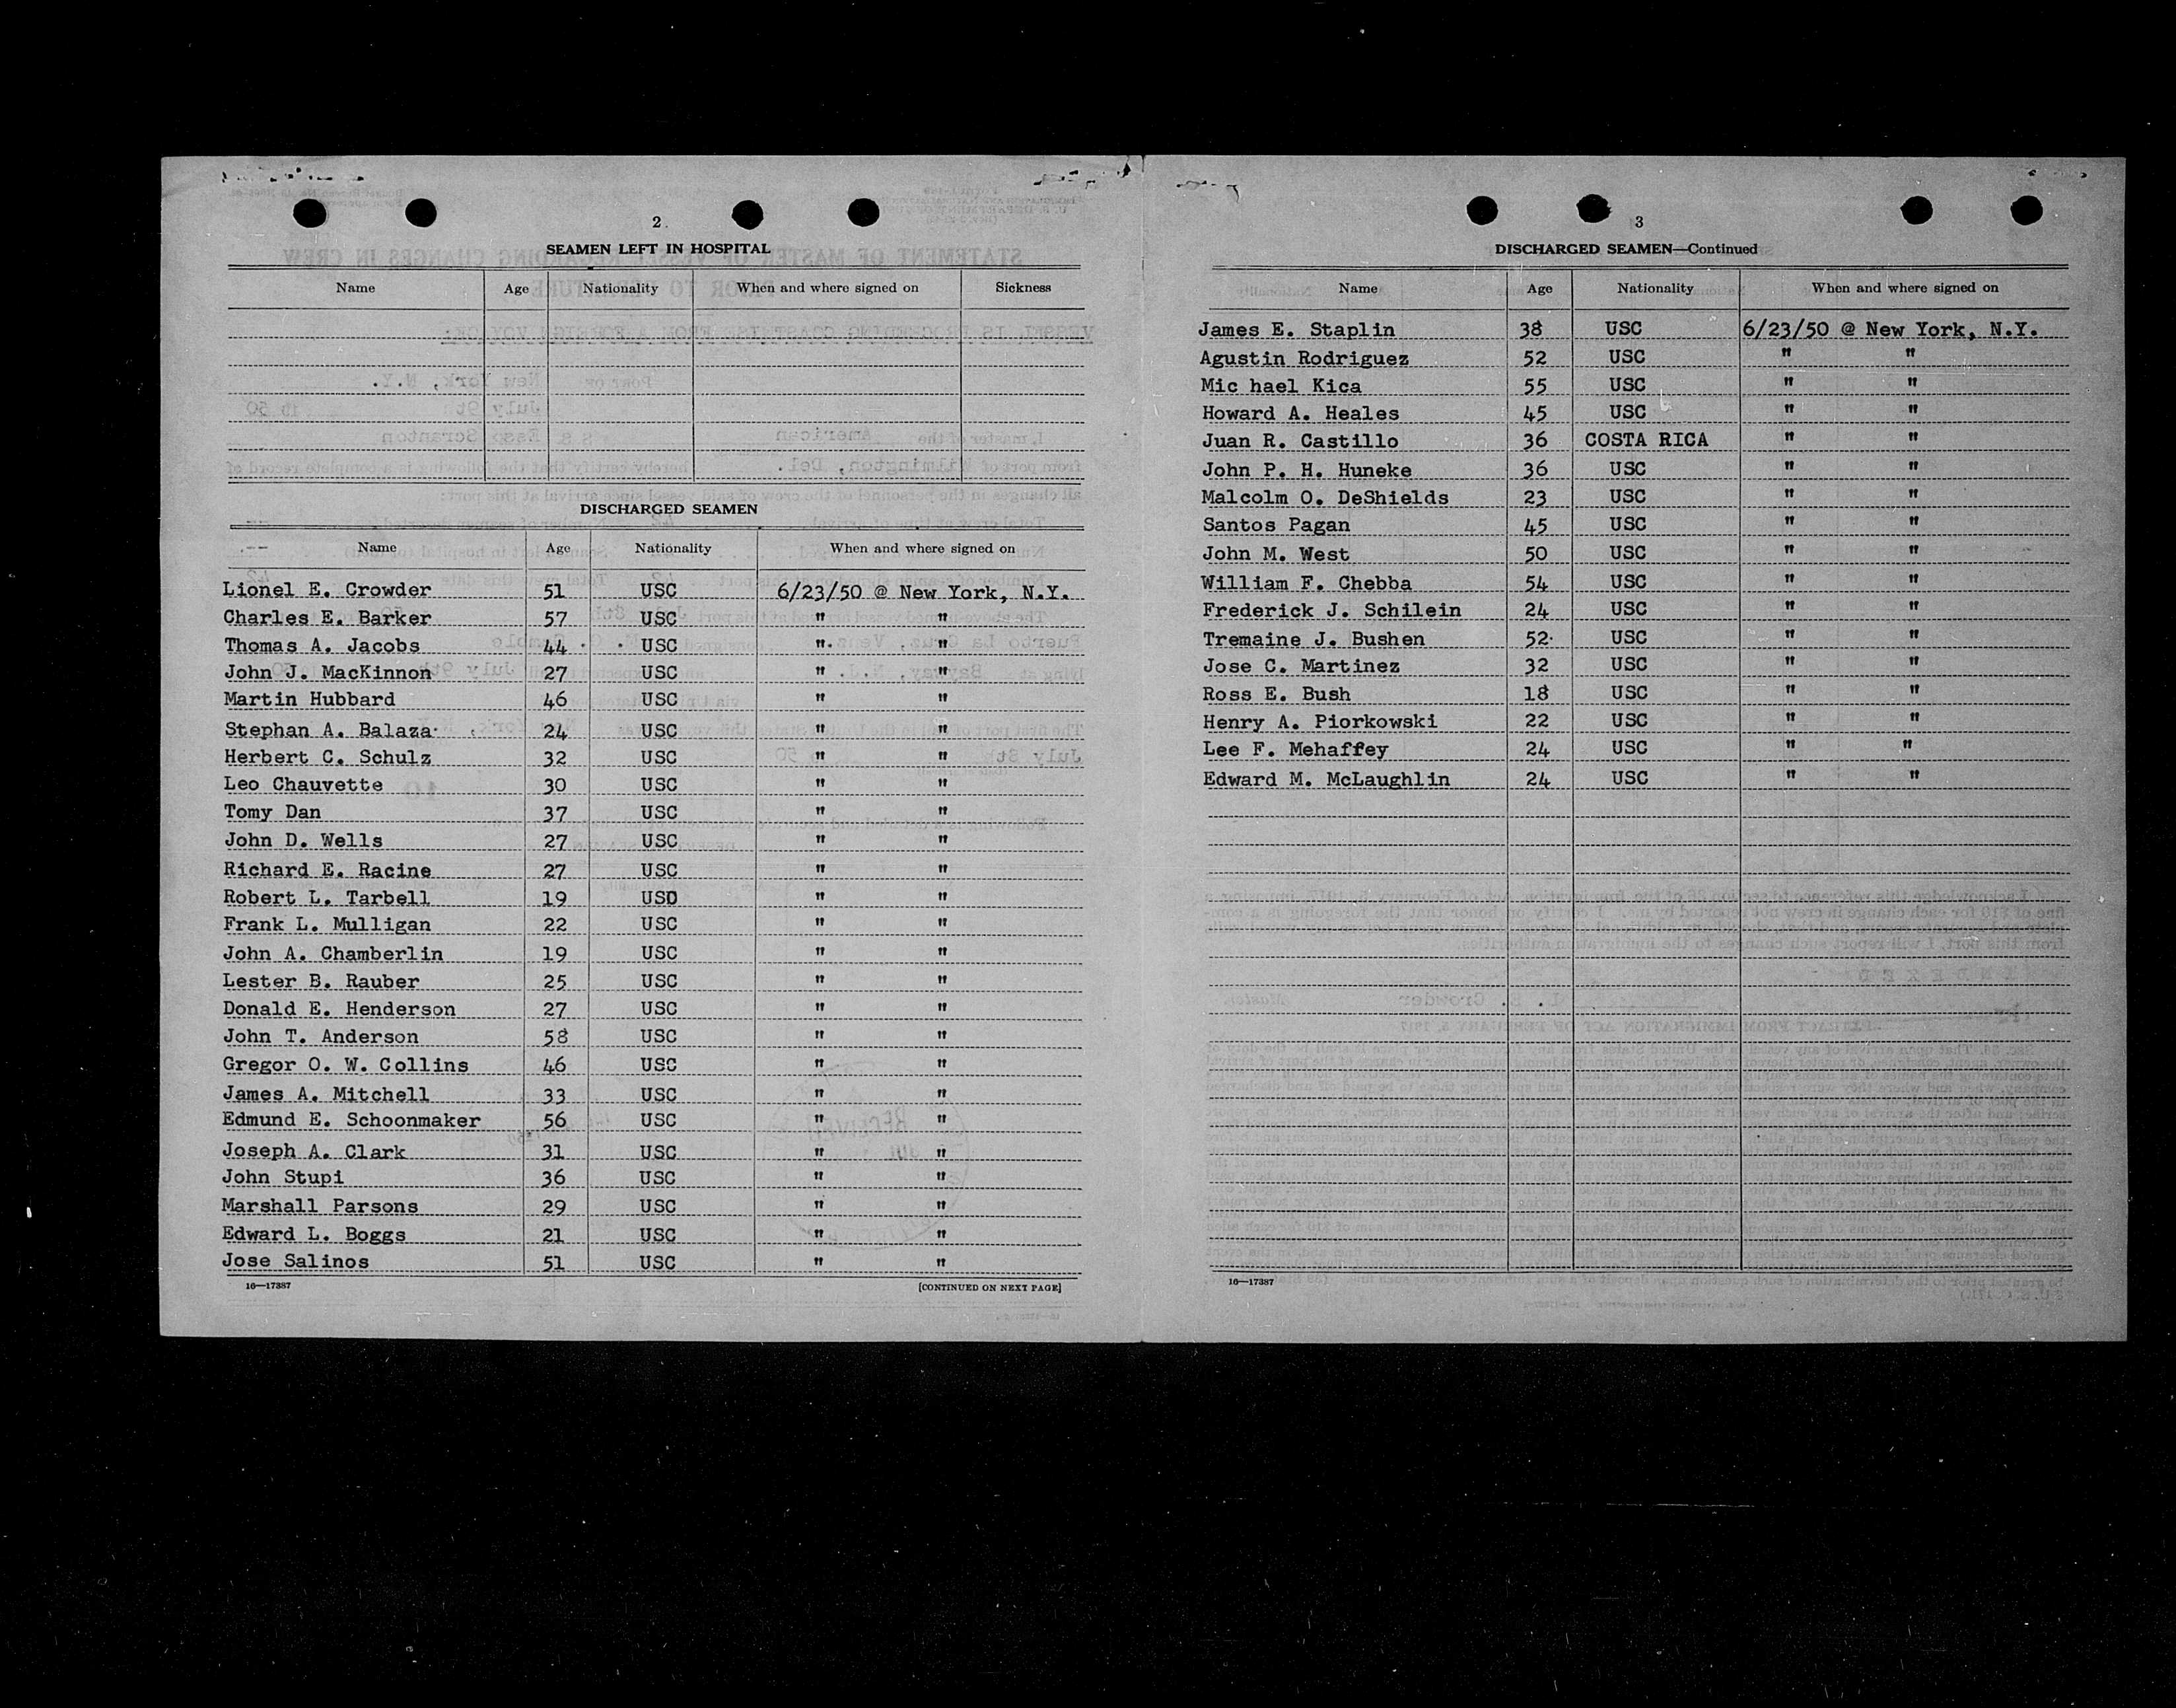 2
SEAMEN LEFT IN HOSPITAL
Name Age Nationality When and where signed on Sickness
DISCHARGED SEAMEN
Name Age Nationality When and where signed on
Lionel E. Crowder 51 USC 6/23/50 @ New York, N.Y.
Charles E. Barker 57 USC " "
Thomas A. Jacobs 44 USC " "
John J. MacKinnon 27 USC " "
Martin Hubbard 46 USC " "
Stephan A. Balaza 24 USC " "
Herbert C. Schulz 32 USC " "
Leo Chauvette 30 USC " "
Tomy Dan 37 USC " "
John D. Wells 27 USC " "
Richard E. Racine 27 USC " "
Robert L. Tarbell 19 USD " "
Frank L. Mulligan 22 USC " "
John A. Chamberlin 19 USC " "
Lester B. Rauber 25 USC " "
Donald E. Henderson 27 USC " "
John T. Anderson 58 USC " "
Gregor O. W. Collins 46 USC " "
James A. Mitchell 33 USC " "
Edmund E. Schoonmaker 56 USC " "
Joseph A. Clark 31 USC " "
John Stupi 36 USC " "
Marshall Parsons 29 USC " "
Edward L. Boggs 21 USC " "
Jose Salinos 51 USC " "
16—17387 [CONTINUED ON NEXT PAGE]
3
DISCHARGED SEAMEN—Continued
Name Age Nationality When and where signed on
James E. Staplin 38 USC 6/23/50 @ New York, N.Y.
Agustin Rodriguez 52 USC " "
Mic hael Kica 55 USC " "
Howard A. Heales 45 USC " "
Juan R. Castillo 36 COSTA RICA " "
John P. H. Huneke 36 USC " "
Malcolm O. DeShields 23 USC " "
Santos Pagan 45 USC " "
John M. West 50 USC " "
William F. Chebba 54 USC " "
Frederick J. Schilein 24 USC " "
Tremaine J. Bushen 52 USC " "
Jose C. Martinez 32 USC " "
Ross E. Bush 18 USC " "
Henry A. Piorkowski 22 USC " "
Lee F. Mehaffey 24 USC " "
Edward M. McLaughlin 24 USC " "
16—17387